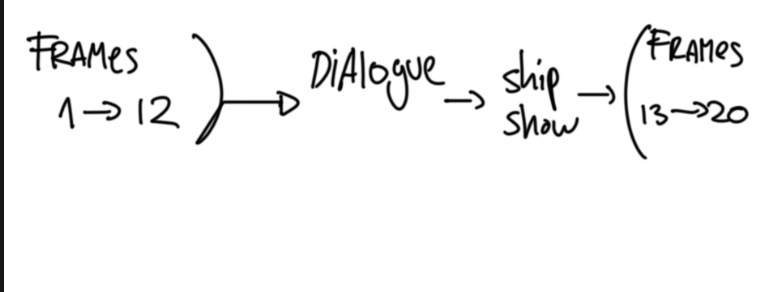 FRAMES
1 → 12
DiAlogue →
ship
show
→
FRAMES
13 → 20